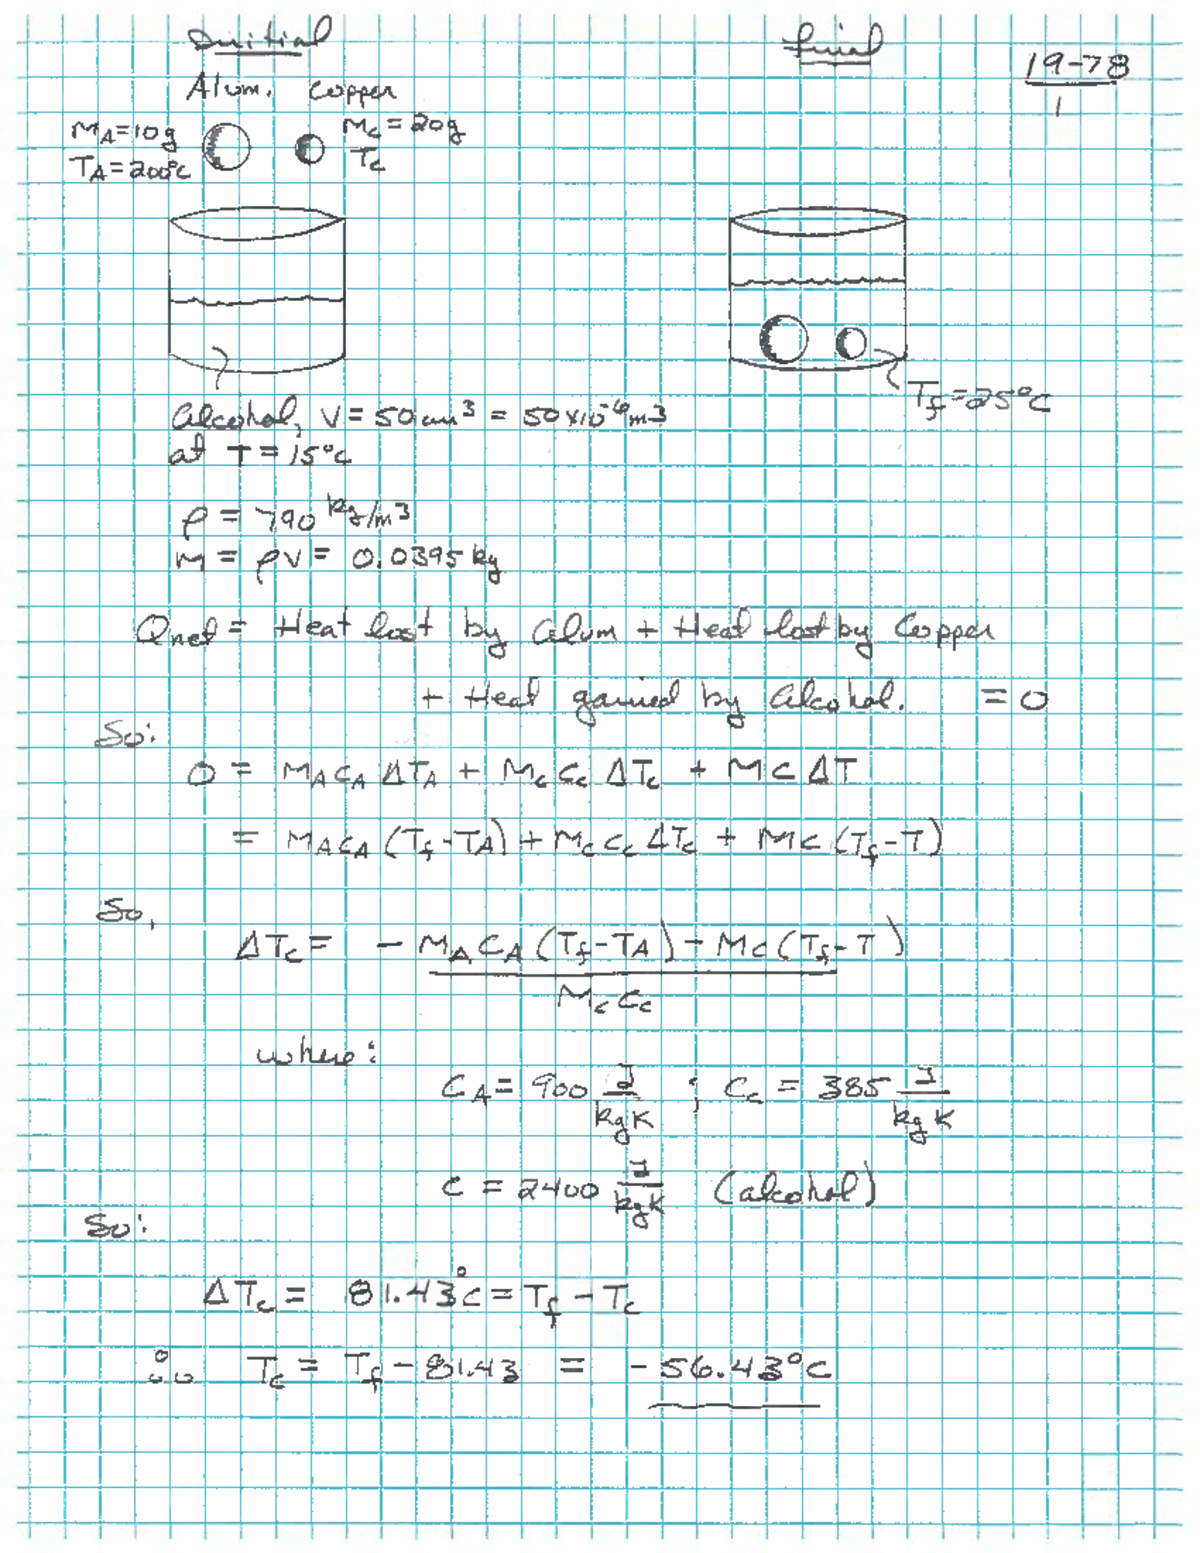 Initial
final
19-78
1
Alum. Copper
M_A = 10g
T_A = 200°C
M_c = 20g
T_c
T_f = 25°C
Alcohol, V = 50 cm³ = 50×10⁻⁶ m³
at T = 15°C
ρ = 790 kg/m³
M = ρV = 0.0395 kg
Qnet = Heat lost by Alum + Heat lost by Copper
+ Heat gained by Alcohol. = 0
So:
0 = M_A C_A ΔT_A + M_c C_c ΔT_c + MCΔT
= M_A C_A (T_f - T_A) + M_c C_c ΔT_c + MC (T_f - T)
So,
ΔT_c = - M_A C_A (T_f - T_A) - MC (T_f - T)
M_c C_c
where:
C_A = 900 J/kg K ; C_c = 385 J/kg K
C = 2400 J/kg K (alcohol)
So:
ΔT_c = 81.43°C = T_f - T_c
∴ T_c = T_f - 81.43 = -56.43°C